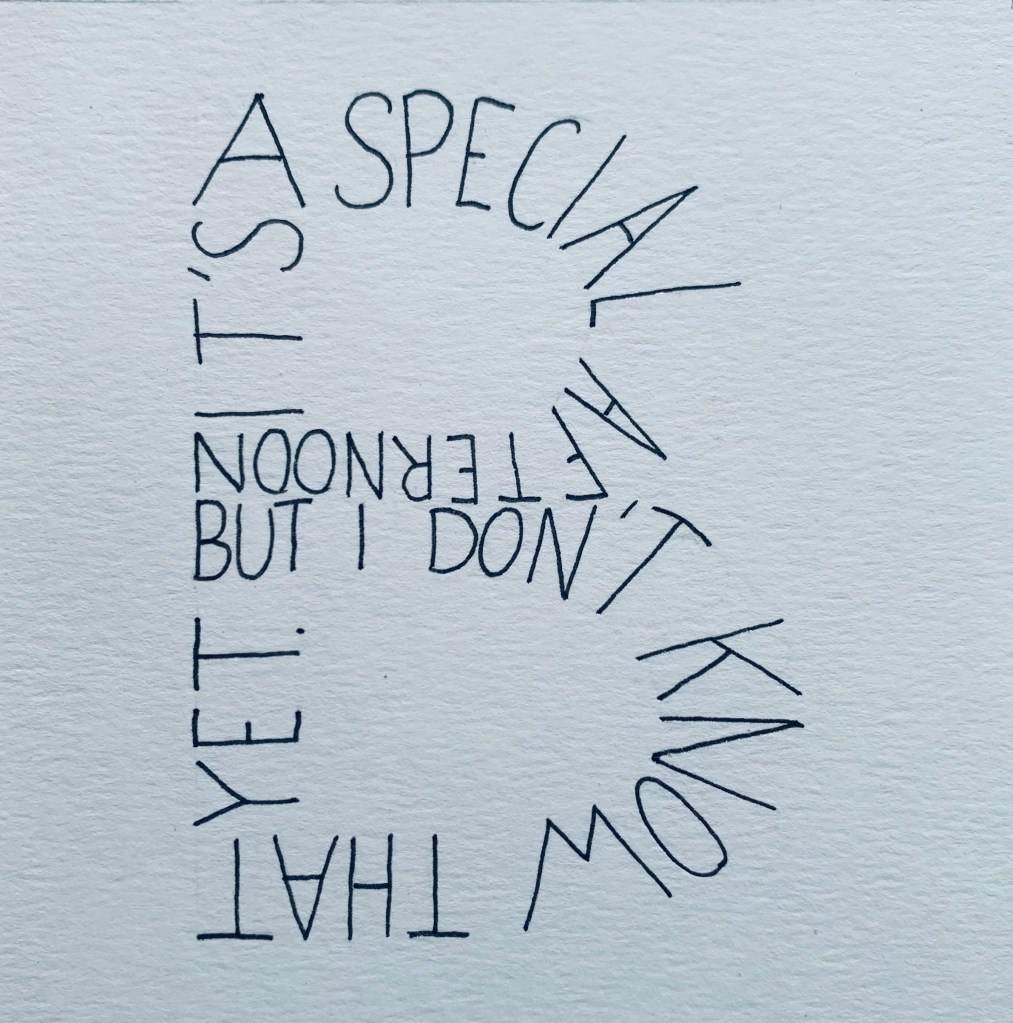 IT'S
A SPECIAL
AFTERNOON
BUT I DON'T
KNOW
THAT
YET.